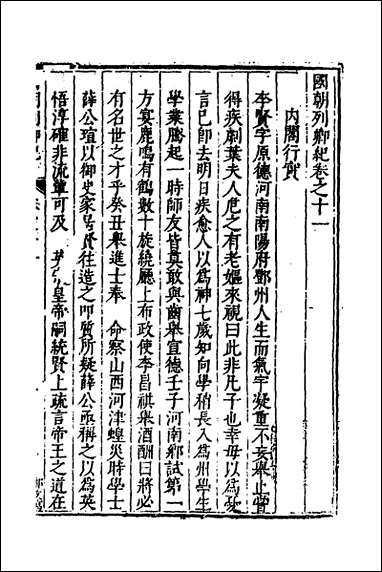 國朝列卿紀卷之十一
內閣行實
李賢字原德河南南陽府鄧州人生而氣宇凝重不妄舉止嘗
得疾劇葉夫人危之有老嫗來視曰此非凡子也幸毋以為
言已卽去明日疾愈人以為神七歲知向學稍長入為州學生
學業騰起一時師友皆莫敢與齒舉宣德壬子河南鄉試第一
方宴鹿鳴有鶴數十旋繞廳上布政使李昌祺舉酒酬曰將必
有名世之才乎癸丑舉進士奉 命察山西河津蝗災時學士
薛公瑄以御史家居賢往造之叩質所疑薛公亟稱之以為英
悟淳確非流輩可及 皇帝嗣統賢上疏言帝王之道在